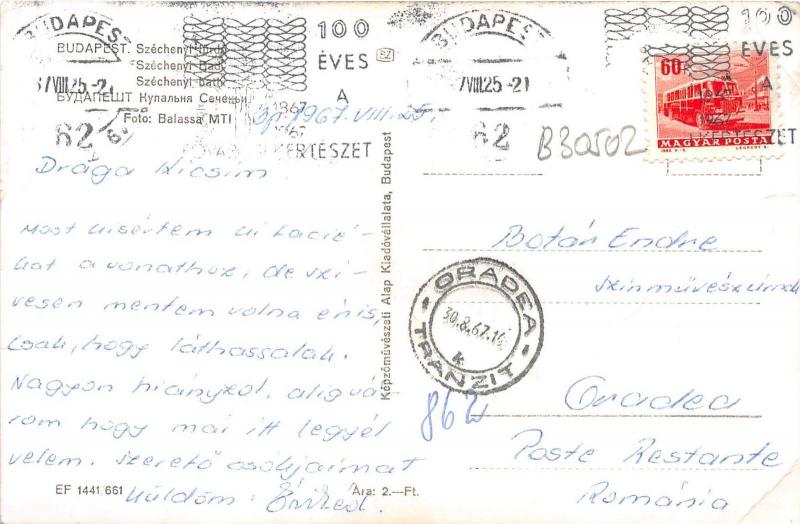 BUDAPEST
100
ÉVES
A
BUDAPEST. Széchenyi fürdő
Széchenyi Bad
Széchenyi bath
БУДАПЕШТ Купальня Сечењи
Foto: Balassa MTI
VIII.25.-21
62
1867
1967
KERTÉSZET
Bp. 1967. VIII. 25.
Drága Kicsim
Most kisértem ki Laciékat
a vonathoz, de szívesen
mentem volna én is,
csak, hogy láthassalak.
Nagyon hiányzol, alig várom
hogy már itt legyél
velem. Szerető csókjaimat
küldöm:
EF 1441 661
Ára: 2.—Ft.
Képzőművészeti Alap Kiadóvállalata, Budapest
BUDAPEST
VIII.25.-21
62
100
ÉVES
A
1967
KERTÉSZET
60f
MAGYAR POSTA
B30502
Botár Endre
Színművész úrnak
ORADEA
30.8.67.16
k
TRANZIT
862
Oradea
Poste Restante
Románia